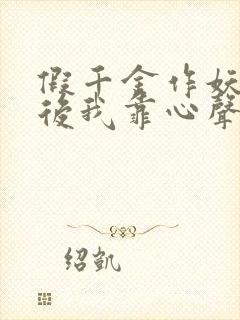 假千金作妖
後我靠心聲
紹凱